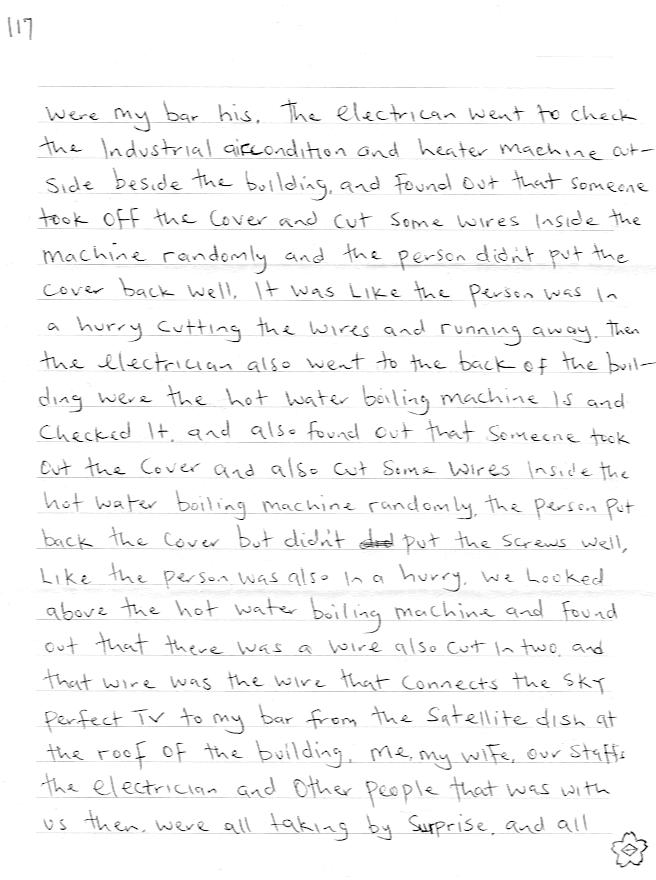 117
were my bar his. The electrican went to check
the Industrial aircondition and heater machine out-
side beside the building, and found out that someone
took off the cover and cut some wires inside the
machine randomly and the person didn't put the
cover back well. It was Like the person was In
a hurry cutting the wires and running away. Then
the electrician also went to the back of the buil-
ding were the hot water boiling machine Is and
Checked It, and also found out that someone took
out the cover and also cut some wires Inside the
hot water boiling machine randomly, the person put
back the cover but didn't put the screws well,
Like the person was also In a hurry. We Looked
above the hot water boiling machine and found
out that there was a wire also cut In two, and
that wire was the wire that connects the SKY
perfect TV to my bar from the satellite dish at
the roof of the building. Me, my wife, our staffs
the electrician and other people that was with
us then, were all taking by surprise, and all